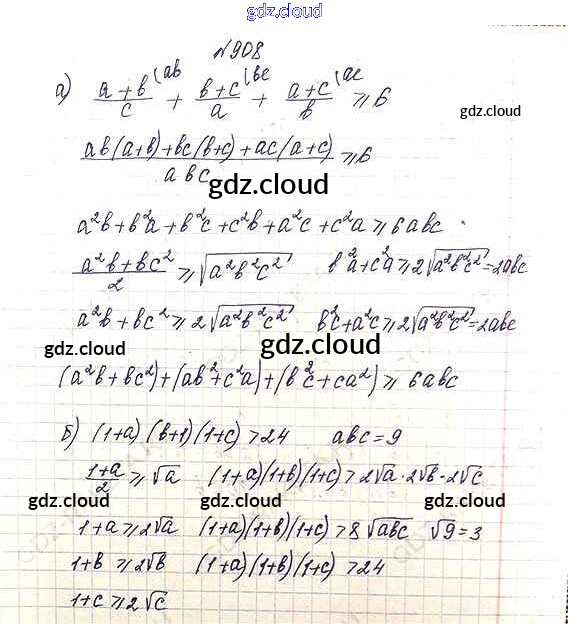 gdz.cloud
gdz.cloud
№908
а) (a+b)/c (ab + (b+c)/a (bc + (a+c)/b (ac ≥ 6
gdz.cloud
(ab(a+b)+bc(b+c)+ac(a+c))/abc ≥ 6
gdz.cloud
a²b+b²a+b²c+c²b+a²c+c²a ≥ 6abc
(a²b+bc²)/2 ≥ √(a²b²c²) b²a+c²a ≥ 2√(a²b²c²) = 2abc
a²b+bc² ≥ 2√(a²b²c²) b²c+a²c ≥ 2√(a²b²c²) = 2abc
gdz.cloud gdz.cloud gdz.cloud
(a²b+bc²)+(ab²+c²a)+(b²c+ca²) ≥ 6abc
б) (1+a)(b+1)(1+c) > 24 abc = 9
(1+a)/2 ≥ √a (1+a)(1+b)(1+c) > 2√a · 2√b · 2√c
gdz.cloud gdz.cloud gdz.cloud
1+a ≥ 2√a (1+a)(1+b)(1+c) > 8√abc √9 = 3
1+b ≥ 2√b (1+a)(1+b)(1+c) > 24
1+c ≥ 2√c
gdz.cloud